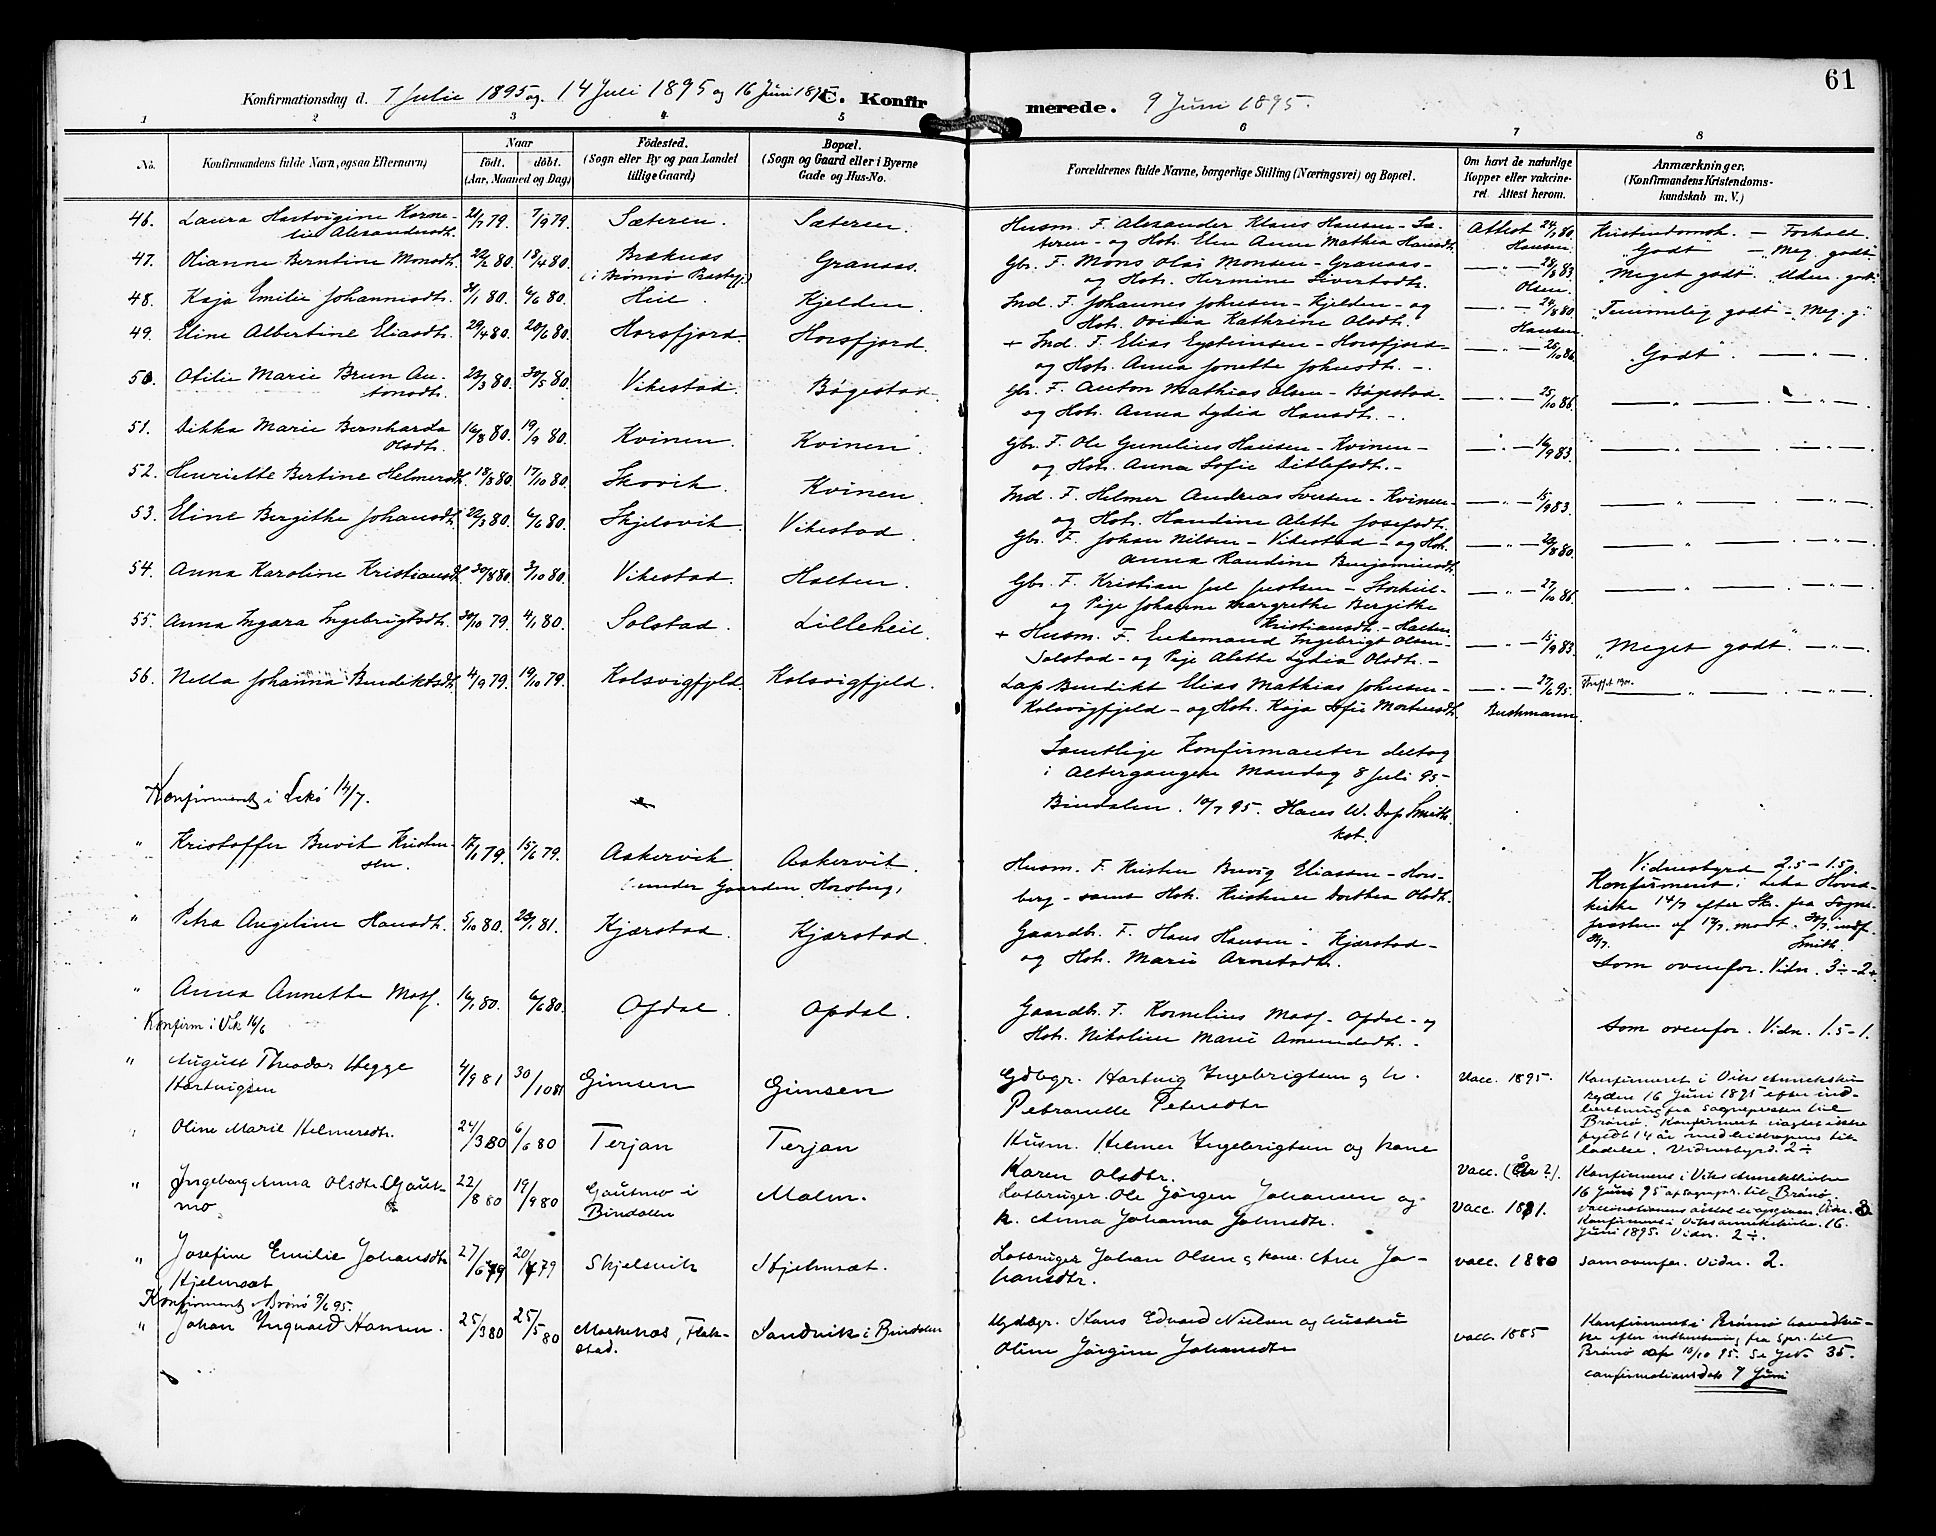 61
Konfirmationsdag d. 7 Julie 1895 og 14 Juli 1895 og 16 Juni 1895 C. Konfirmerede. 9 Juni 1895.
1 2 3 4 5 6 7 8
No. Konfirmandens fulde Navn, ogsaa Efternavn) Naar født. døbt. (Aar, Maaned og Dag) Fødested. (Sogn eller By og paa Landet tillige Gaard) Bopæl. (Sogn og Gaard eller i Byerne Gade og Hus-No. Forældrenes fulde Navne, borgerlige Stilling (Næringsvei) og Bopæl. Om havt de naturlige Kopper eller vakcineret. Attest herom. Anmærkninger, (Konfirmandens Kristendomskundskab m. V.)
46. Laura Hartvigine Kornelie Alexandersdt. 21/7 79 7/9 79 Sæteren. Sæteren. Husm. F. Alexander Klaus Hansen - Sæteren - og Hst. Elen Anna Mathia Hansdt. Attest 24/8 80. Hansen. Kristendomsk. - Forhold. "Godt" - "Meg. godt"
47. Olianne Berntine Monsdt. 22/2 80. 18/4 80. Bræknæs (i Brønnø Prestegj.) Granaas. Gbr. F. Mons Olai Monsen - Granaas - og Hst. Hermine Sivertsdt. 28/8 83. Olsen. "Meget godt". "Uden. godt"
48. Kaja Emilie Johannesdt. 31/1 80. 6/6 80. Heil. Kjelden. Ind. F. Johannes Johnsen - Kjelden - og Hst. Ovidia Kathrine Olsdt. 24/8 80. Hansen. "Temmelig godt" - Meg. g."
49. Eline Albertine Eliasdt. 29/4 80. 20/6 80. Horsfjord. Horsfjord. + Ind. F. Elias Eysteinsen - Horsfjord - og Hst. Anna Jonette Johnsdt. -. 25/10 86. "Godt".
50. Otilie Marie Brun Antonsdt. 23/3 80. 30/5 80. Vikestad. Bøgestad. Gbr. F. Anton Mathias Olsen - Bøgestad - og Hst. Anna Lydia Hansdt. -. 25/10 86.
51. Dikka Marie Bernharda Olsdt. 16/8 80. 19/9 80. Kvinen. Kvinen. Gbr. F. Ole Gunelius Hansen - Kvinen - og Hst. Anna Sofie Ditlefsdt. - 16/9 83.
52. Henriette Bertine Helmersdt. 18/8 80. 17/10 80. Skovik. Kvinen. Ind. F. Helmer Andreas Iversen - Kvinen - og Hst. Handine Alette Josefsdt. 15/9 83.
53. Eline Bergithe Johansdt. 22/3 80. 6/6 80. Skjelsvik. Vikestad. Gbr. F. Johan Nilsen - Vikestad - og Hst. Anna Randine Benjaminsdt. 20/8 80.
54. Anna Karoline Kristiansdt. 30/8 80. 3/10 80. Vikestad. Halten. Gbr. F. Kristian Jul Justsen - Storheil - og Pige Johanne Margrethe Bergithe Kristiansdt. - Halten. 27/10 86.
55. Anna Ingara Ingebrigtsdt. 30/10 79. 4/1 80. Solstad. Lilleheil. + Husm. F. Enkemand Ingebrigt Olsen Solstad - og Pige Alette Lydia Olsdt. - 15/9 83. "Meget godt".
56. Nella Johanna Bendiktsdt. 4/9 79. 19/10 79. Kolsvigfjeld. Kolsvigfjeld. Lap Bendikt Elias Mathias Johnsen - Kolsvigfjeld - og Hst. Kaja Sofie Mortensdt. 27/6 95. Buchmann.
Samtlige Konfirmanter deltog
i Altergangen Mandag 8 Juli 95 -
Bindalen. 10/7 95. Hans W. Dop Smith. kst.
Konfirmeret i Lekø 14/7.
" Kristoffer Brevik Kristensen. 17/1 79. 15/6 79. Aakervik (under Gaarden Horsberg) Aakervik. Husm. F. Kristen Brevig Eliassen - Horsberg - samt Hst. Kristine Dorthea Olsdt. Vidnesbyrd 2.5 - 1.5. Konfirmeret i Leka Hovedkirke 14/7 efter Skr. fra Sognepresten af 17/7, modt. 30/7, indf. 30/7. Smith.
" Petra Angeline Hansdt. 5/10 80. 23/1 81. Kjærstad. Kjærstad. Gaardb. F. Hans Hansen - Kjærstad - og Hst. Marie Arntsdt. Som ovenfor. Vidn. 3÷ - 2+
" Anna Annette Moss. 16/1 80. 6/6 80. Opdal. Opdal. Gaardb. F. Kornelius Moss - Opdal - og Hst. Nikoline Marie Amundsdt. - Som ovenfor. Vidn. 1.5 - 1.
Konfirm i Vik 16/6
" August Theodor Hegge Hartvigsen 4/9 81 30/10 81 Gimsen Gimsen Gdbgr. Hartvig Ingebrigtsen og h. Petronelle Petersdtr Vacc. 1895. Konfirmeret i Viks Annekskirke søndag 16 Juni 1895 efter indberetning fra sognepresten til Brønø. Konfirmeret uagtet ikke fyldt 14 år med biskopens tilladelse. Vidnesbyrd. 2÷
" Oline Marie Helmersdtr. 24/3 80 6/6 80 Terjan Terjan Husm. Helmer Ingebrigtsen og kone Karen Olsdtr. Vacc. (År ?). Konfirmeret i Viks Annekskirke 16 Juni 95 af sognepr. til Brønø.
" Ingeborg Anna Olsdtr. Gautmo 22/8 80 19/9 80 Gautmo i Bindalen Malm. Lodbruger Ole Jørgen Johansen og k. Anna Johanna Johnsdtr. Vacc. 1881. Konfirmeret i Viks annekskirke 16. Juni 1895. Vidn. 2÷.
" Josefine Emilie Johansdtr Hjelmsæt 27/6 79 20/7 79 Skjelsvik Hjelmsæt. Lodbruger Johan Olsen og kone Ane Johansdtr. vacc. 1880 som ovenfor. Vidn. 2.
Konfirmeret i Brønø 9/6 95.
" Johan Ingvald Hansen. 25/3 80 25/5 80 Mortenæs, Flakstad. Sandvik i Bindalen Gdbgr. Hans Edvard Nielsen og hustru Oline Jørgine Johansdtr vacc. 1885 Konfirmeret i Brønø hovedkirke efter indberetning fra spr. til Brønø af 10/10 95. Se J.No. 35. confirmationsdato 9 Juni